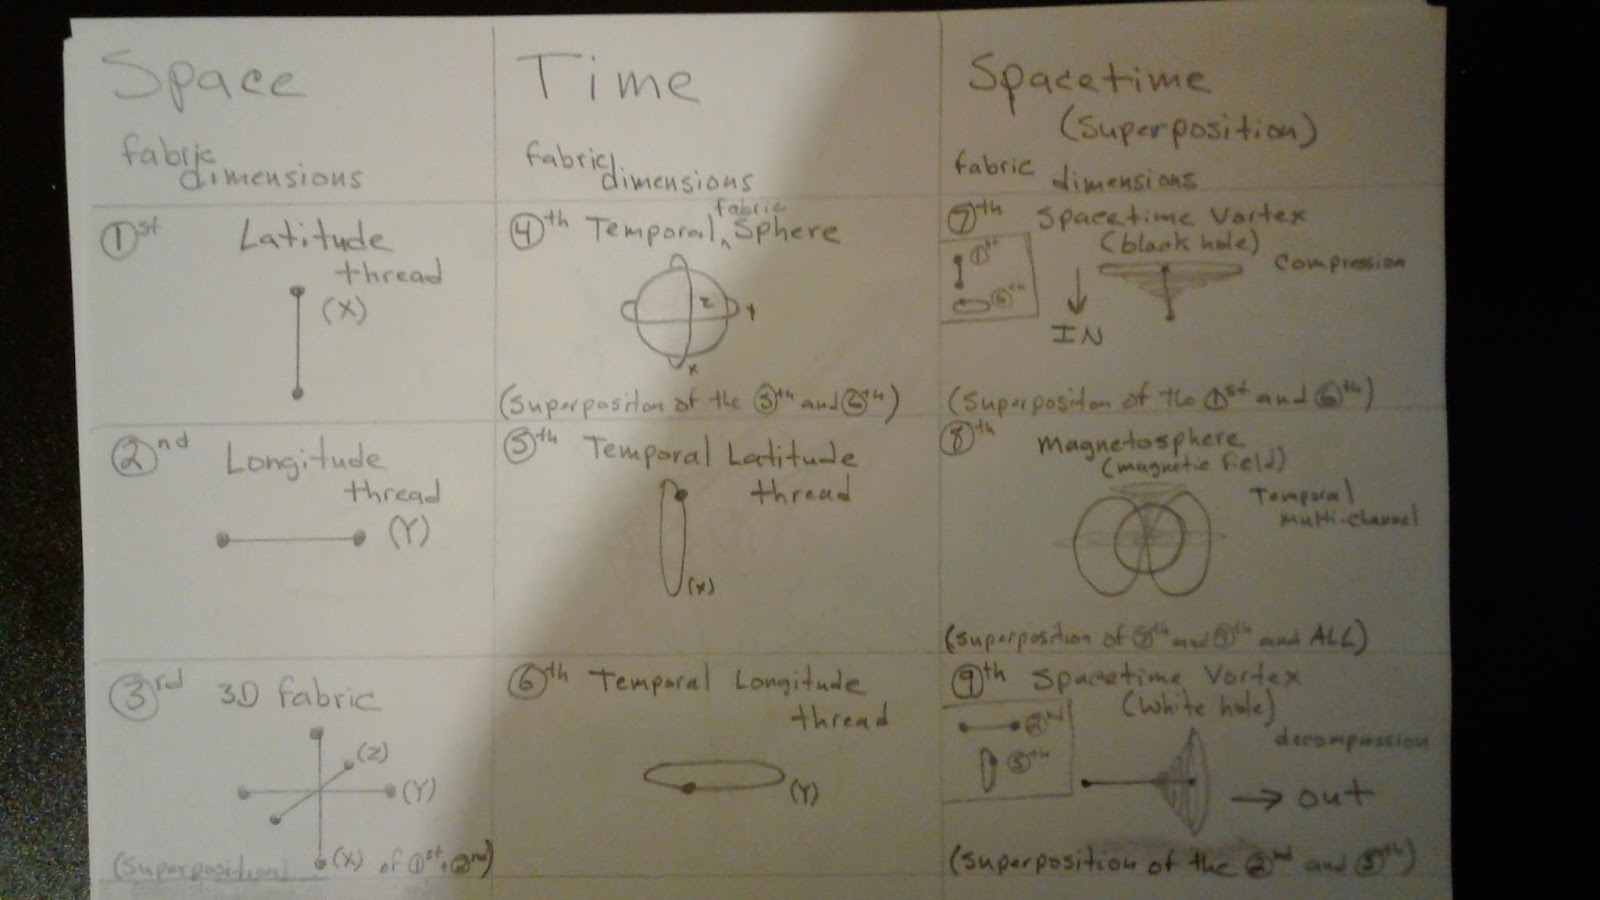 Space
fabric dimensions
①st Latitude thread
(X)
②nd Longitude thread
(Y)
③rd 3D fabric
(Z)
(Y)
(X)
(Superposition) of ①st + ②nd)
Time
fabric dimensions
④th Temporal fabric Sphere
z
Y
x
(Superpositon of the ⑤th and ⑥th)
⑤th Temporal Latitude thread
(X)
⑥th Temporal Longitude thread
(Y)
Spacetime
(Superposition)
fabric dimensions
⑦th Spacetime Vortex
(black hole)
①st
⑥th
IN
Compression
(Superpositon of the ①st and ⑥th)
⑧th Magnetosphere
(magnetic field)
Temporal
multi-channel
(Superposition of and and ALL)
⑨th Spacetime Vortex
(White hole)
②nd
⑤th
decompression
out
(Superposition of the ②nd and ⑤th)